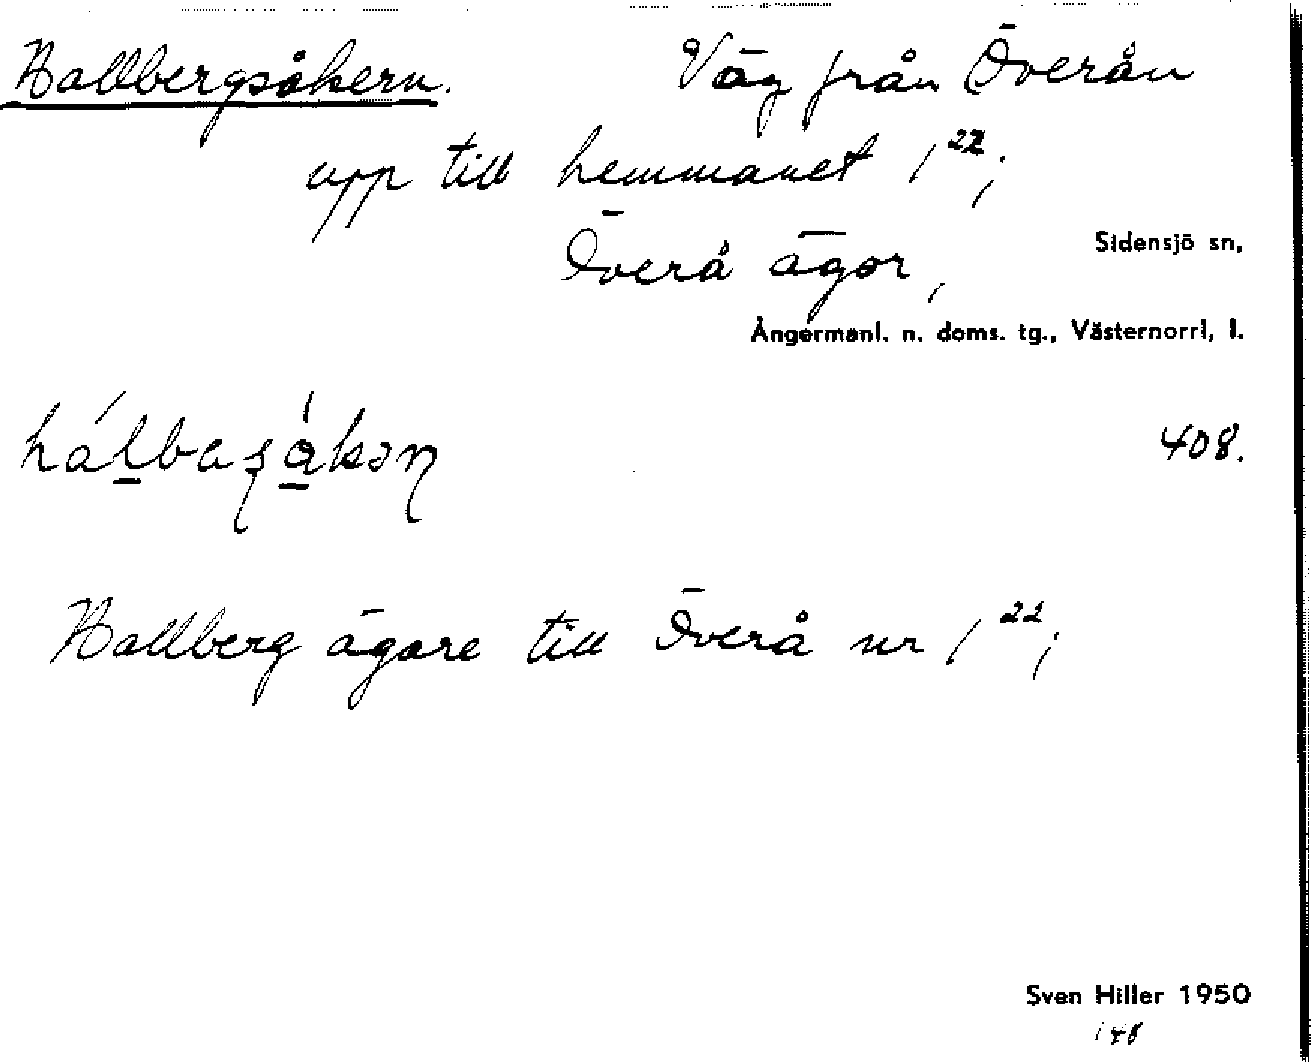 Hallbergsåkern. Väg från Överån
upp till hemmanet 1²²;
Överå ägor,
Sidensjö sn,
Ångermanl. n. doms. tg., Västernorrl, l.
408.
Hallberg ägare till Överå nr 1²²;
Sven Hiller 1950